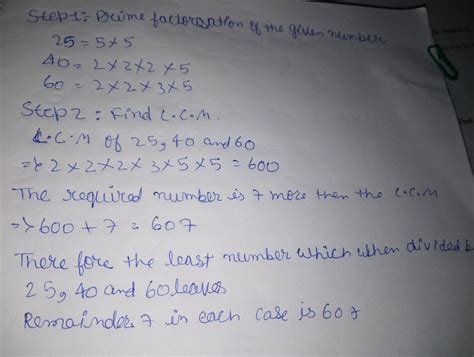 Step1:- Prime factorization of the given number
25 = 5×5
40 = 2×2×2×5
60 = 2×2×3×5
Step2: Find L.C.M.
L.C.M of 25, 40 and 60
=> 2×2×2×3×5×5 = 600
The required number is 7 more then the L.C.M
=> 600 + 7 = 607
There fore the least number which when divided b
25, 40 and 60 leaves
Remainder 7 in each case is 607